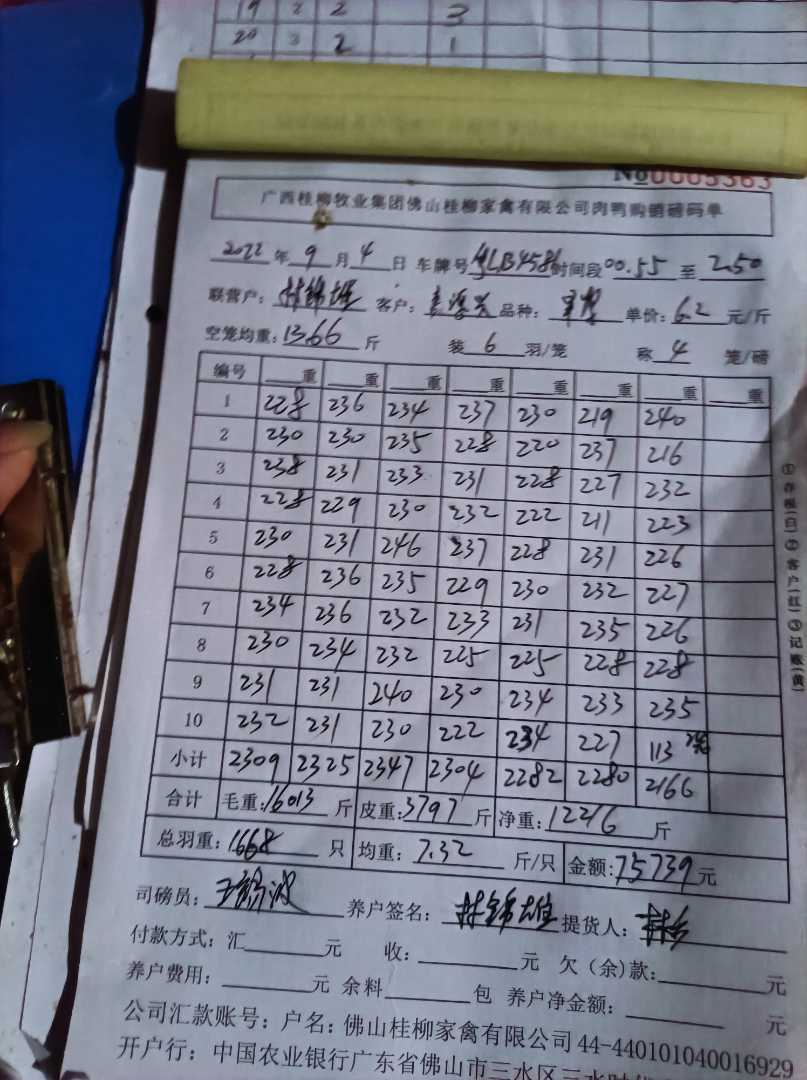 19 2 2 3
20 3 2 1
No0005363
广西桂柳牧业集团佛山桂柳家禽有限公司肉鸭购销磅码单
2022年9月4日 车牌号 时间段00.55至2.50
联营户：林锦雄 客户： 品种： 单价：6.2元/斤
空笼均重：13.66斤 装6羽/笼 称4笼/磅
编号 重 重 重 重 重 重 重 重
1 228 236 234 237 230 219 240
2 230 230 235 228 220 237 216
3 238 231 233 231 228 227 232
4 228 229 230 232 222 211 223
5 230 231 246 237 228 231 226
6 228 236 235 229 230 232 227
7 234 236 232 233 231 235 226
8 230 234 232 225 225 228 228
9 231 231 240 230 234 233 235
10 232 231 230 222 234 227 113
小计 2309 2325 2347 2304 2282 2280 2166
合计 毛重：16013斤 皮重：3797斤 净重：12216斤
总羽重：1668只 均重：7.32斤/只 金额：75739元
司磅员： 养户签名：林锦雄 提货人：
付款方式：汇 元 收： 元 欠（余）款： 元
养户费用： 元 余料 包 养户净金额： 元
公司汇款账号：户名：佛山桂柳家禽有限公司 44-440101040016929
开户行：中国农业银行广东省佛山市三水区三水
①存根（白）②客户（红）③记账（黄）